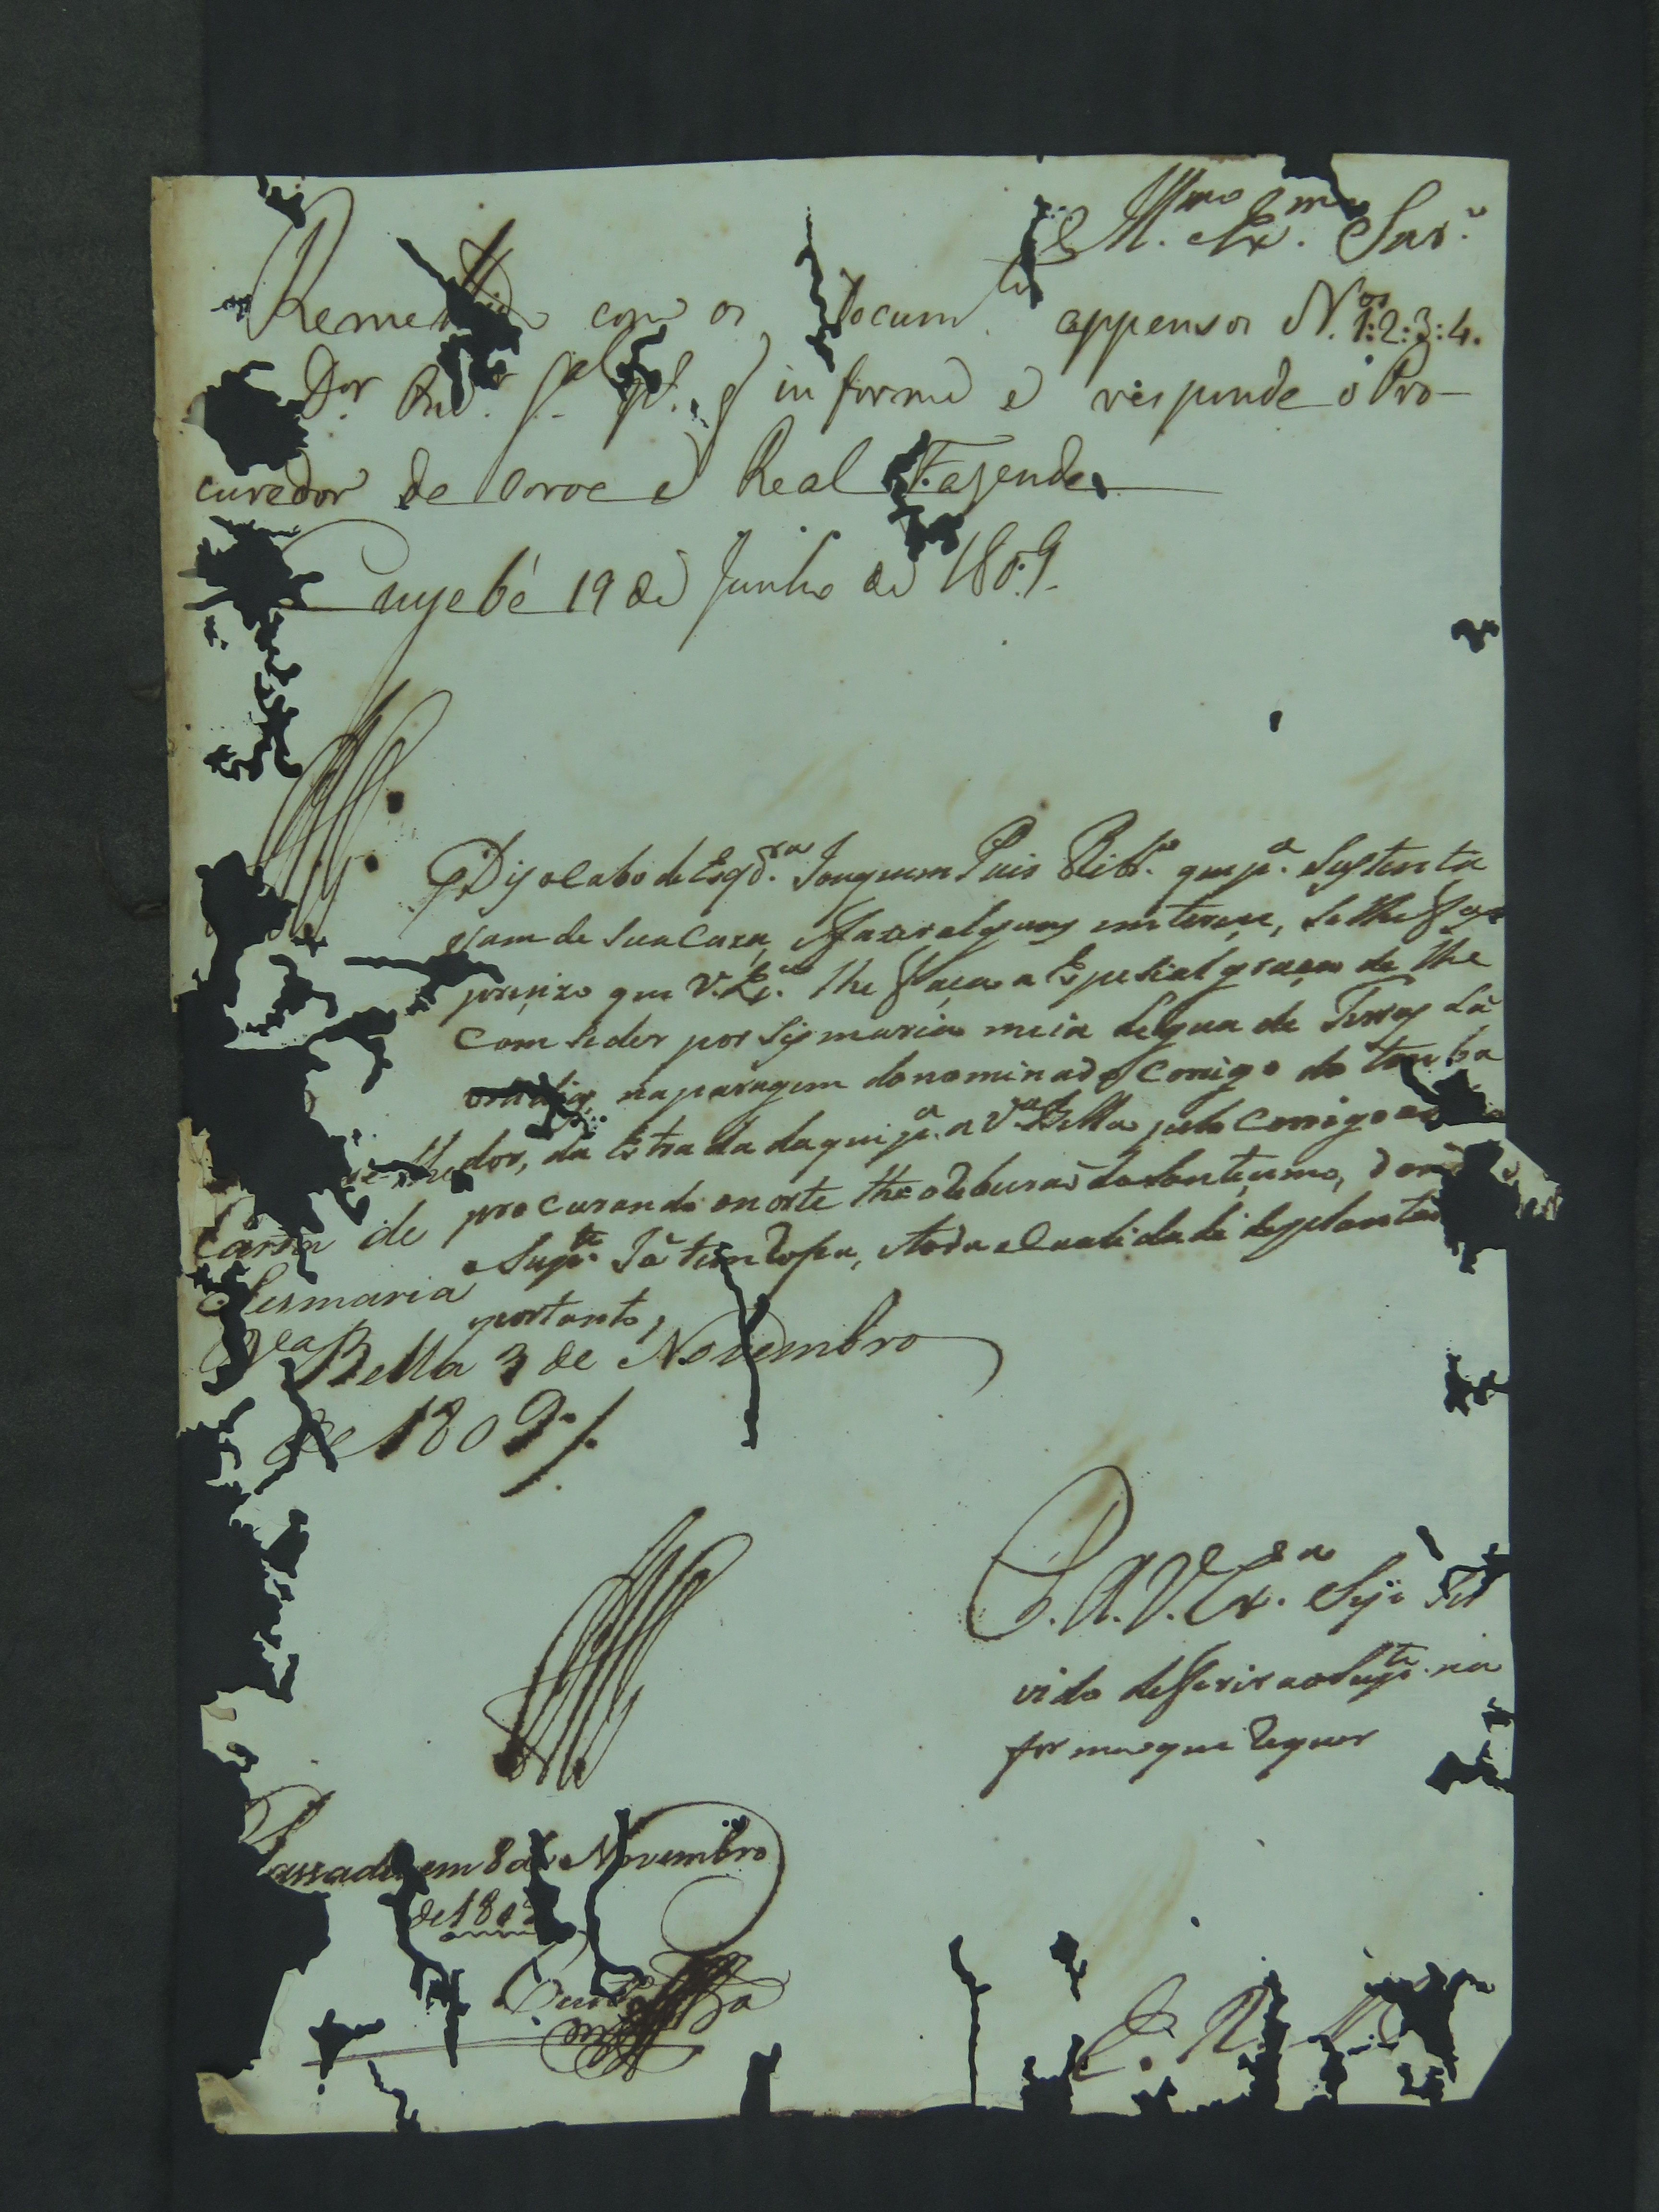 Ill.mo e Ex.mo Snr.
Remettido com os Docum.tos appensos N.os 1:2:3:4.
Dor g.al p.a q informe e responde o Pro-
curador da Coroa e Real Fazenda
Cuyabá 19 de Junho de 1809.
Dis o Cabo de Esqdr.a Joaquim Luis Rib.ro que p.a Sustenta
esam de sua Caza, e fazer alguns interese, se lhe faz
presizo que V. Ex.a lhe faça a Espesial graça de lhe
Comseder por Sismaria meia Legua de Terras La
na paragem donominado Corrigo do Tomba
dor, da Estrada daqui p.a a V.a Bella, pelo Corrigo
procurando o norte the o
o Sup.te Ja tem Rosa, e toda Coalidade de plantas
portanto,
se lhe
Carta de
Sesmaria
V.la Bella 3 de Novembro
de 1809.
P. A. V. Ex.a Seja Ser
vido defferir ao Sup.te na
forma que Requer
Passada em 8 de Novembro
de 180
E. R. M.